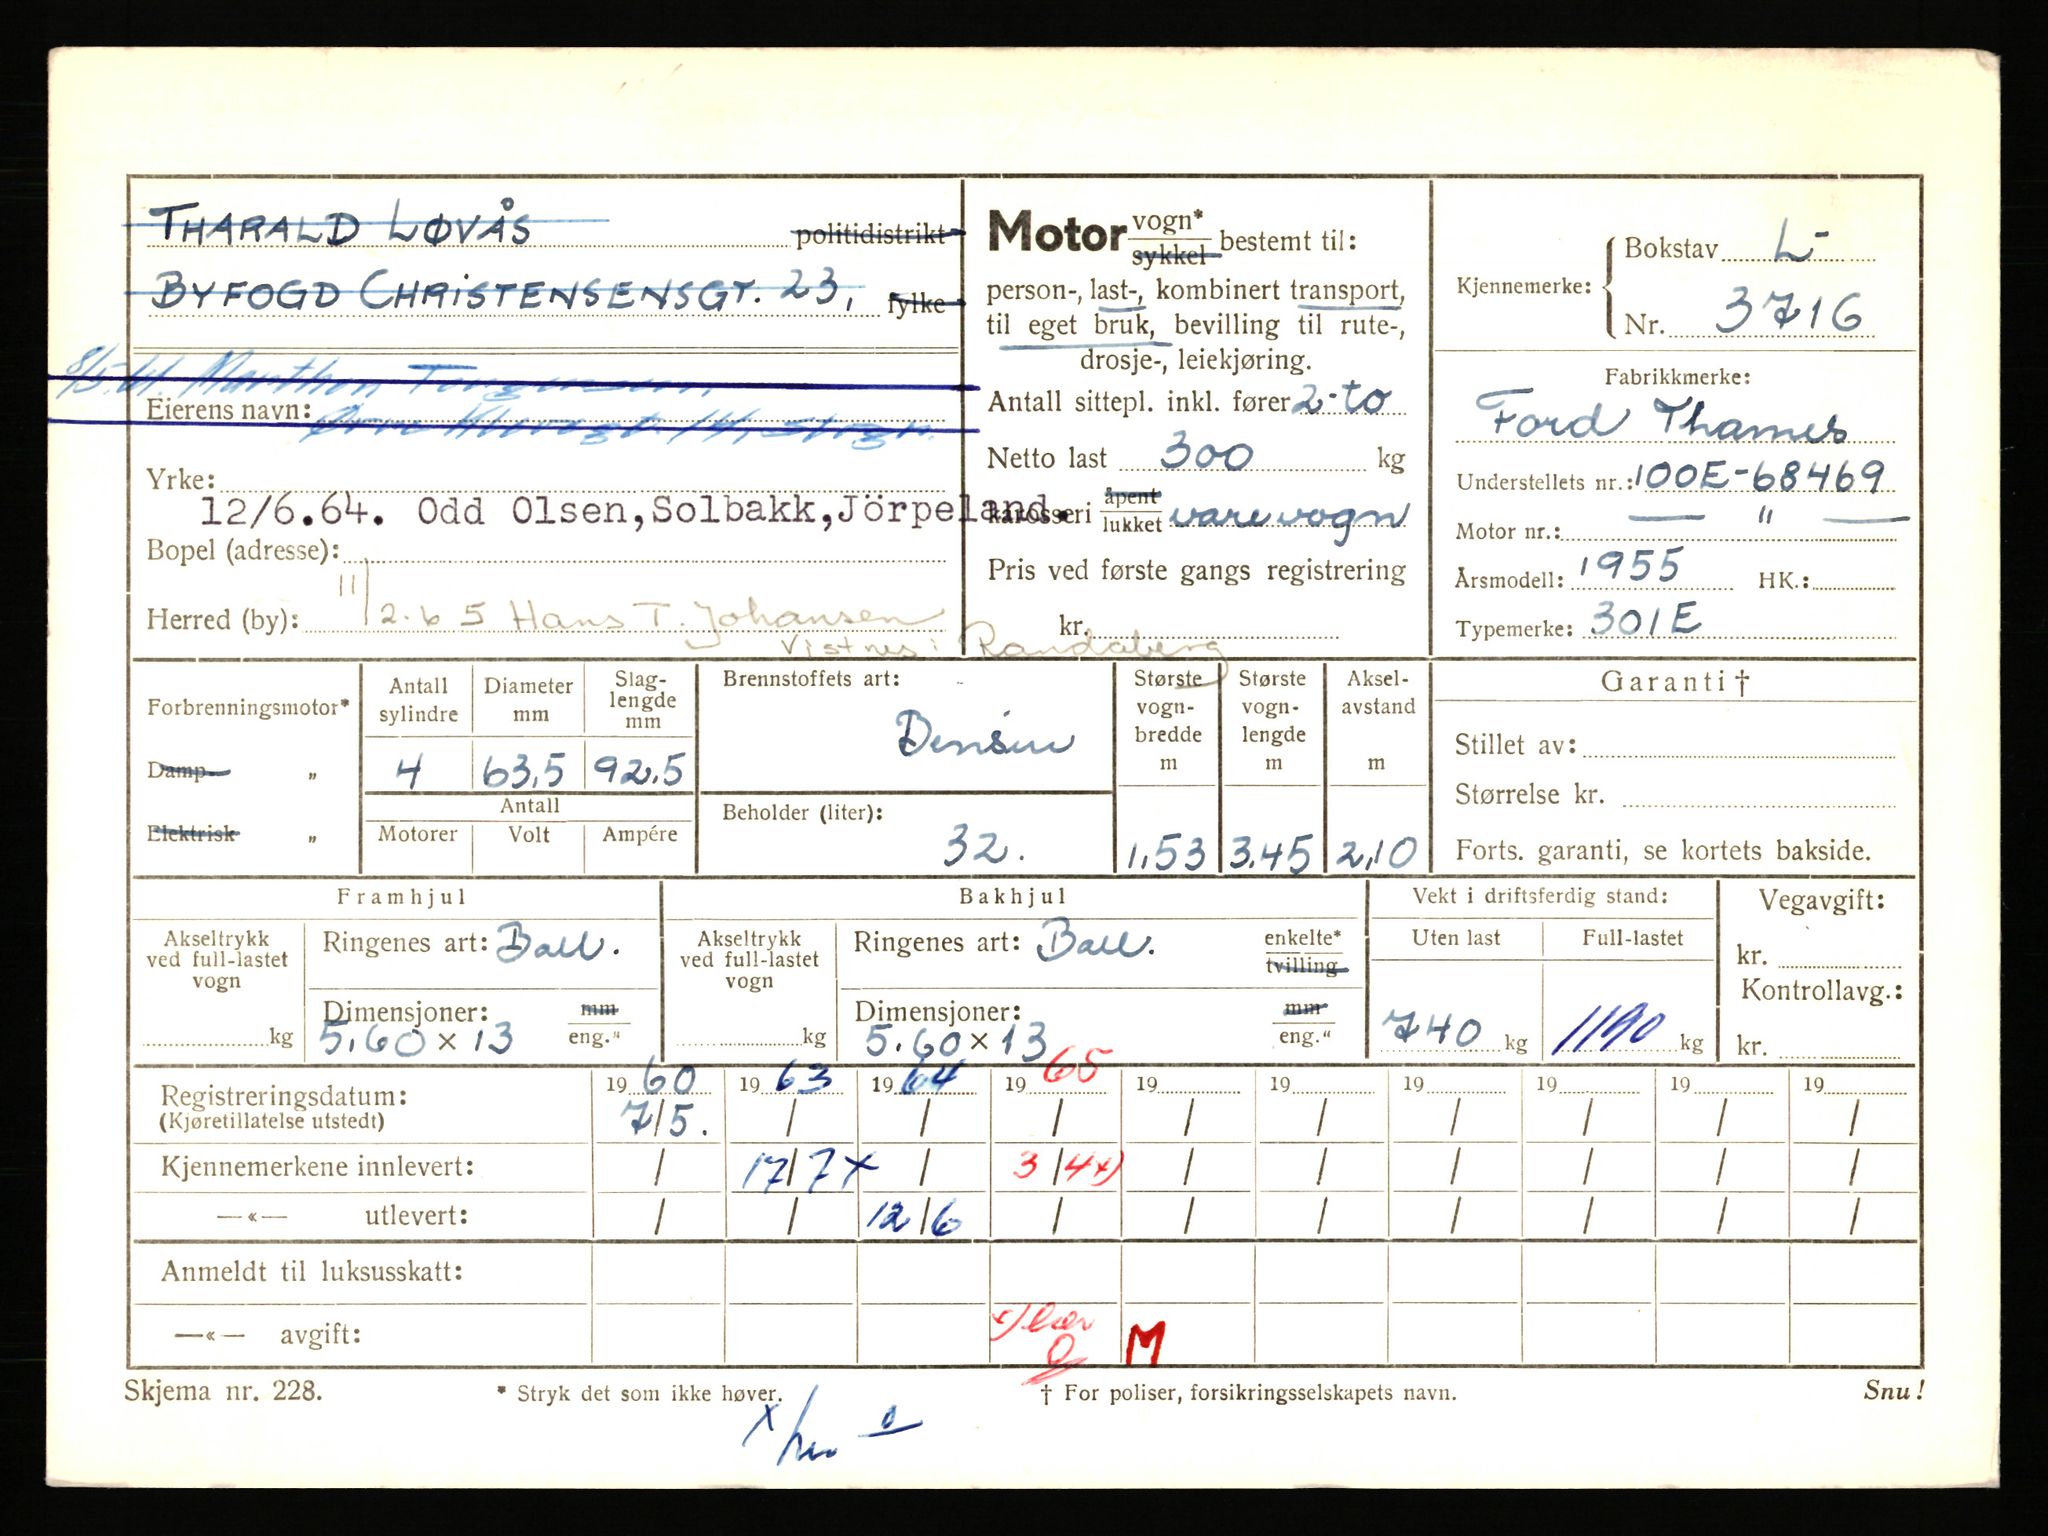 THARALD LØVÅS politidistrikt
BYFOGD CHRISTENSENSGT. 23, fylke
Eierens navn:
Yrke:
12/6.64. Odd Olsen, Solbakk, Jörpeland.
Bopel (adresse):
Herred (by): 11/2.65 Hans T. Johansen
Vistnes i Randaberg
Motor vogn* sykkel bestemt til:
person-, last-, kombinert transport,
til eget bruk, bevilling til rute-,
drosje-, leiekjøring.
Antall sittepl. inkl. fører 2-to
Netto last 300 kg
karosseri åpent lukket varevogn
Pris ved første gangs registrering
kr.
Kjennemerke: Bokstav L-
Nr. 3716
Fabrikkmerke:
Ford Thames
Understellets nr.: 100E-68469
Motor nr.: — " —
Årsmodell: 1955 HK.:
Typemerke: 301E
Forbrenningsmotor*
Damp „
Elektrisk „
Antall sylindre
4
Diameter mm
63,5
Slag-
lengde
mm
92,5
Antall
Motorer Volt Ampére
Brennstoffets art:
Bensin
Beholder (liter):
32.
Største
vogn-
bredde
m
1,53
Største
vogn-
lengde
m
3,45
Aksel-
avstand
m
2,10
Garanti †
Stillet av:
Størrelse kr.
Forts. garanti, se kortets bakside.
Framhjul
Akseltrykk
ved full-lastet
vogn
kg
Ringenes art: Ball.
Dimensjoner: mm
5.60 x 13 eng."
Bakhjul
Akseltrykk
ved full-lastet
vogn
kg
Ringenes art: Ball. enkelte*
tvilling
Dimensjoner: mm
5.60 x 13 eng."
Vekt i driftsferdig stand:
Uten last Full-lastet
740 kg 1190 kg
Vegavgift:
kr.
Kontrollavg.:
kr.
Registreringsdatum: 19 60 19 63 19 64 19 65 19 19 19 19 19 19
(Kjøretillatelse utstedt) 7/5. / / / / / / / / /
Kjennemerkene innlevert: / 17/7 x / 3/4 x) / / / / / /
—«— utlevert: / / 12/6 / / / / / / /
Anmeldt til luksusskatt:
—«— avgift: M
Skjema nr. 228. * Stryk det som ikke høver. † For poliser, forsikringsselskapets navn. Snu!